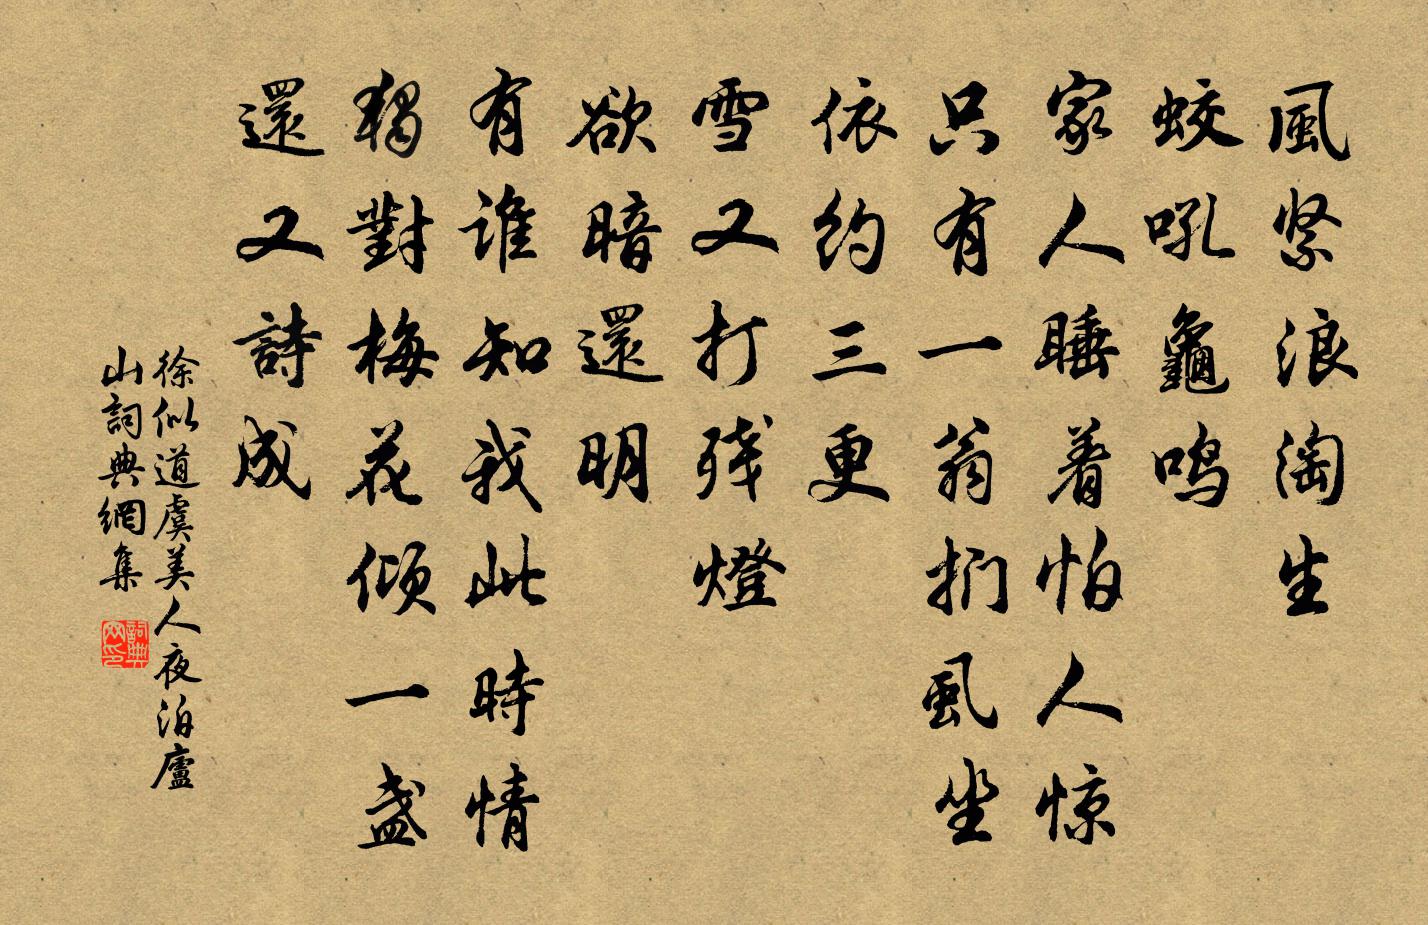 風紧浪淘生
蛟吼鼉鸣
家人睡着怕人惊
只有一翁扪虱坐
依约三更
雪又打残燈
欲暗還明
有谁知我此時情
獨對梅花倾一盏
還又詩成
徐似道虞美人夜泊廬
山詞典網集
詞典网印